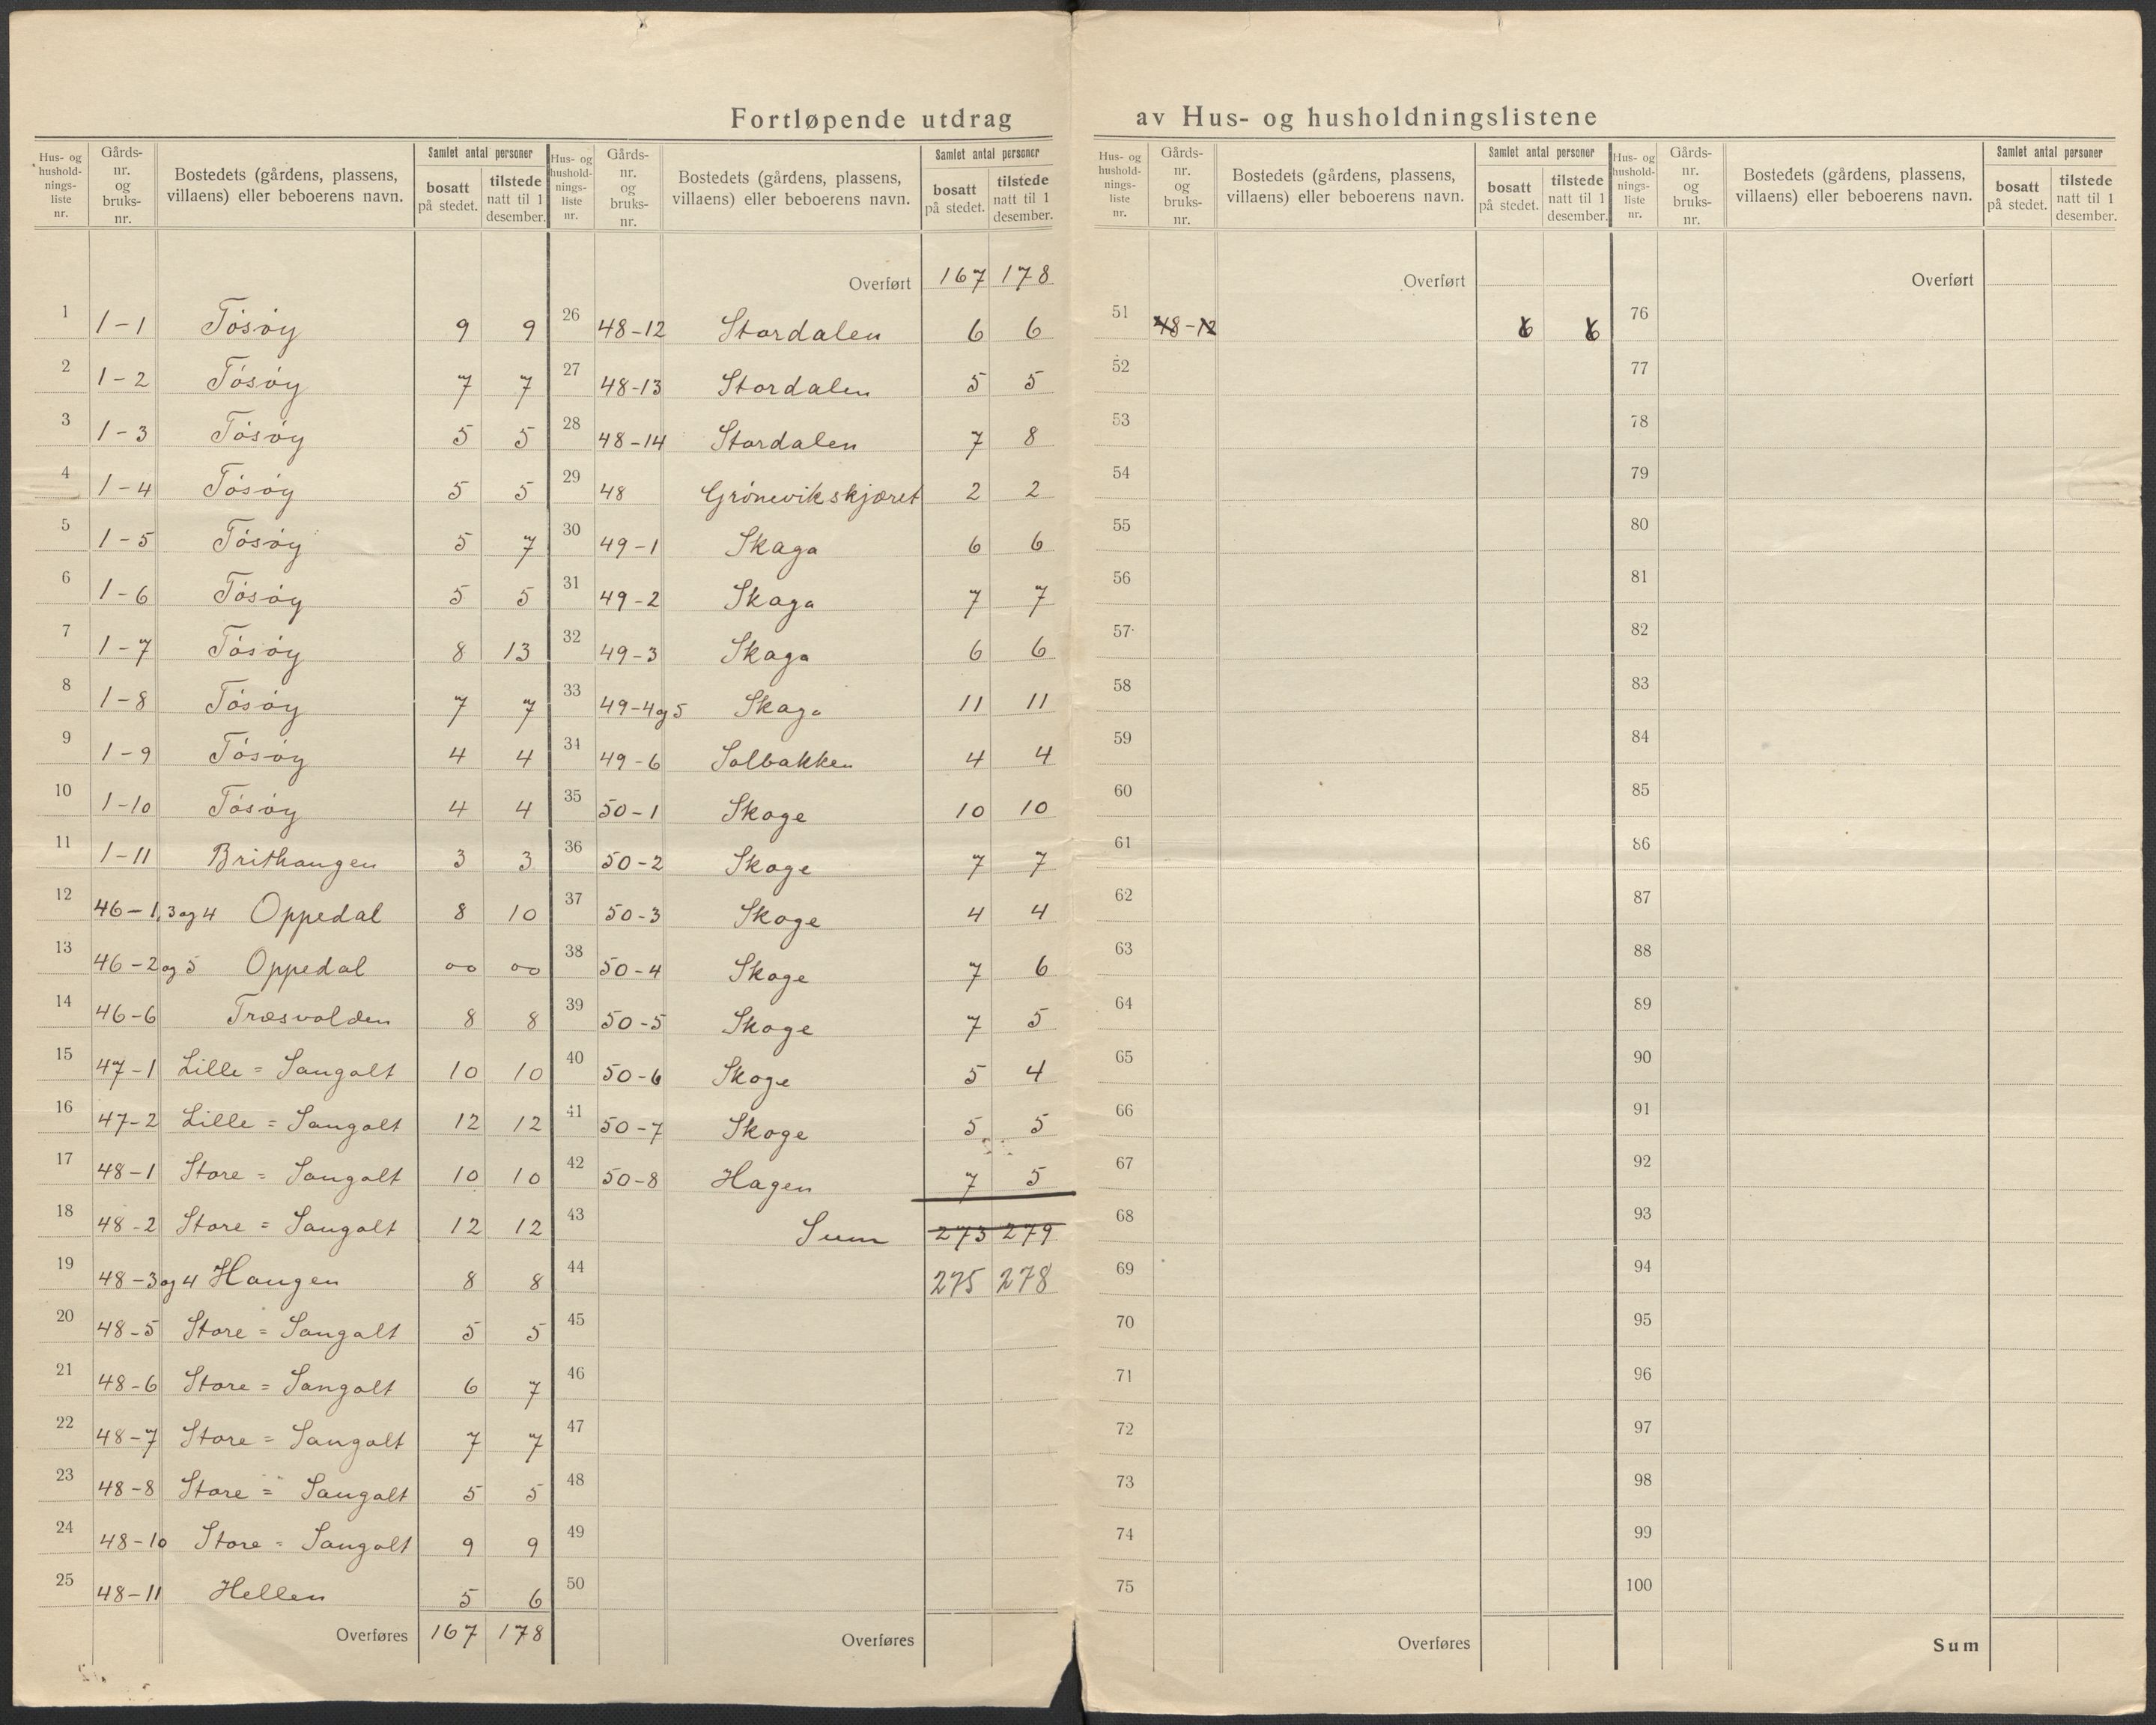 Fortløpende utdrag av Hus- og husholdningslistene
Hus- og hushold-nings-liste nr. Gårds-nr. og bruks-nr. Bostedets (gårdens, plassens, villaens) eller beboerens navn. Samlet antal personer bosatt på stedet. tilstede natt til 1 desember.
1 1-1 Tósóy 9 9
2 1-2 Tósóy 7 7
3 1-3 Tósóy 5 5
4 1-4 Tósóy 5 5
5 1-5 Tósóy 5 7
6 1-6 Tósóy 5 5
7 1-7 Tósóy 8 13
8 1-8 Tósóy 7 7
9 1-9 Tósóy 4 4
10 1-10 Tósóy 4 4
11 1-11 Brithaugen 3 3
12 46-1,3og4 Oppedal 8 10
13 46-2og5 Oppedal oo oo
14 46-6 Træsvolden 8 8
15 47-1 Lille = Sangolt 10 10
16 47-2 Lille = Sangolt 12 12
17 48-1 Store = Sangolt 10 10
18 48-2 Store = Sangolt 12 12
19 48-3og4 Haugen 8 8
20 48-5 Store = Sangolt 5 5
21 48-6 Store = Sangolt 6 7
22 48-7 Store = Sangolt 7 7
23 48-8 Store = Sangolt 5 5
24 48-10 Store = Sangolt 9 9
25 48-11 Hellen 5 6
Overføres 167 178
Hus- og hushold-nings-liste nr. Gårds-nr. og bruks-nr. Bostedets (gårdens, plassens, villaens) eller beboerens navn. Samlet antal personer bosatt på stedet. tilstede natt til 1 desember.
Overført 167 178
26 48-12 Stordalen 6 6
27 48-13 Stordalen 5 5
28 48-14 Stordalen 7 8
29 48 Grónevikskjæret 2 2
30 49-1 Skaga 6 6
31 49-2 Skaga 7 7
32 49-3 Skaga 6 6
33 49-4og5 Skaga 11 11
34 49-6 Solbakken 4 4
35 50-1 Skoge 10 10
36 50-2 Skoge 7 7
37 50-3 Skoge 4 4
38 50-4 Skoge 7 6
39 50-5 Skoge 7 5
40 50-6 Skoge 5 4
41 50-7 Skoge 5 5
42 50-8 Hagen 7 5
43 Sum 273 279
44 275 278
45
46
47
48
49
50
Overføres
Hus- og hushold-nings-liste nr. Gårds-nr. og bruks-nr. Bostedets (gårdens, plassens, villaens) eller beboerens navn. Samlet antal personer bosatt på stedet. tilstede natt til 1 desember.
Overført
51 48-12 6 6
52
53
54
55
56
57
58
59
60
61
62
63
64
65
66
67
68
69
70
71
72
73
74
75
Overføres
Hus- og hushold-nings-liste nr. Gårds-nr. og bruks-nr. Bostedets (gårdens, plassens, villaens) eller beboerens navn. Samlet antal personer bosatt på stedet. tilstede natt til 1 desember.
Overført
76
77
78
79
80
81
82
83
84
85
86
87
88
89
90
91
92
93
94
95
96
97
98
99
100
Sum